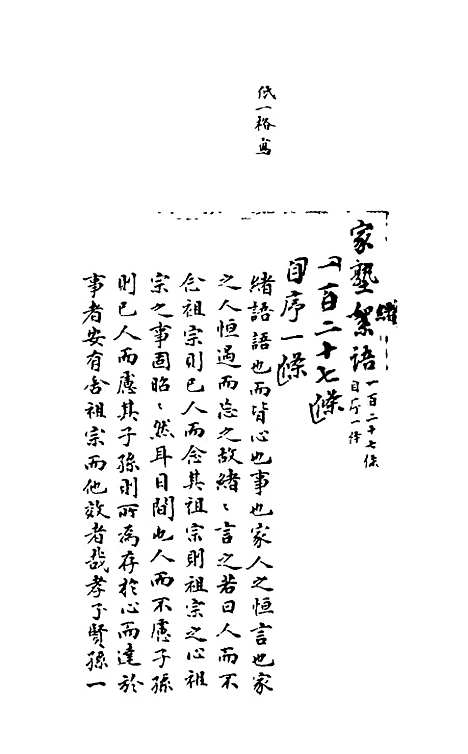 低一格寫
家塾絮語一百二十七條
自序一條
緒
一百二十七條
自序一條
緒語語也而皆心也事也家人之恒言也家
之人恒過而忘之故緒緒言之若曰人而不
念祖宗則已人而念其祖宗則祖宗之心祖
宗之事固昭昭然耳目間也人而不慮子孫
則已人而慮其子孫則所為存於心而達於
事者安有舍祖宗而他效者哉孝子賢孫一